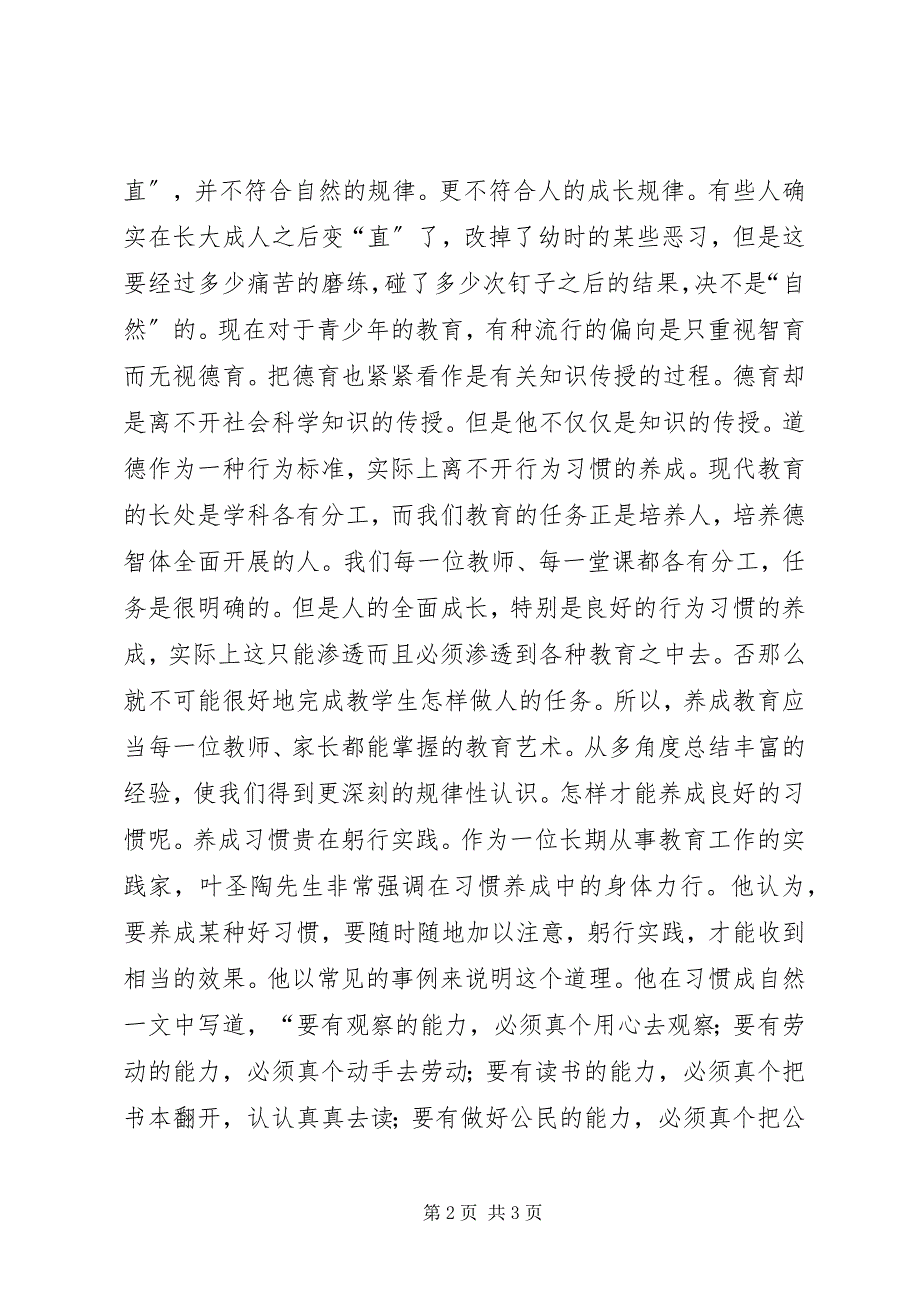 直〞，并不符合自然的规律。更不符合人的成长规律。有些人确
实在长大成人之后变“直〞了，改掉了幼时的某些恶习，但是这
要经过多少痛苦的磨练，碰了多少次钉子之后的结果，决不是“自
然〞的。现在对于青少年的教育，有种流行的偏向是只重视智育
而无视德育。把德育也紧紧看作是有关知识传授的过程。德育却
是离不开社会科学知识的传授。但是他不仅仅是知识的传授。道
德作为一种行为标准，实际上离不开行为习惯的养成。现代教育
的长处是学科各有分工，而我们教育的任务正是培养人，培养德
智体全面开展的人。我们每一位教师、每一堂课都各有分工，任
务是很明确的。但是人的全面成长，特别是良好的行为习惯的养
成，实际上这只能渗透而且必须渗透到各种教育之中去。否那么
就不可能很好地完成教学生怎样做人的任务。所以，养成教育应
当每一位教师、家长都能掌握的教育艺术。从多角度总结丰富的
经验，使我们得到更深刻的规律性认识。怎样才能养成良好的习
惯呢。养成习惯贵在躬行实践。作为一位长期从事教育工作的实
践家，叶圣陶先生非常强调在习惯养成中的身体力行。他认为，
要养成某种好习惯，要随时随地加以注意，躬行实践，才能收到
相当的效果。他以常见的事例来说明这个道理。他在习惯成自然
一文中写道，“要有观察的能力，必须真个用心去观察；要有劳
动的能力，必须真个动手去劳动；要有读书的能力，必须真个把
书本翻开，认认真真去读；要有做好公民的能力，必须真个把公
第 2 页 共 3 页